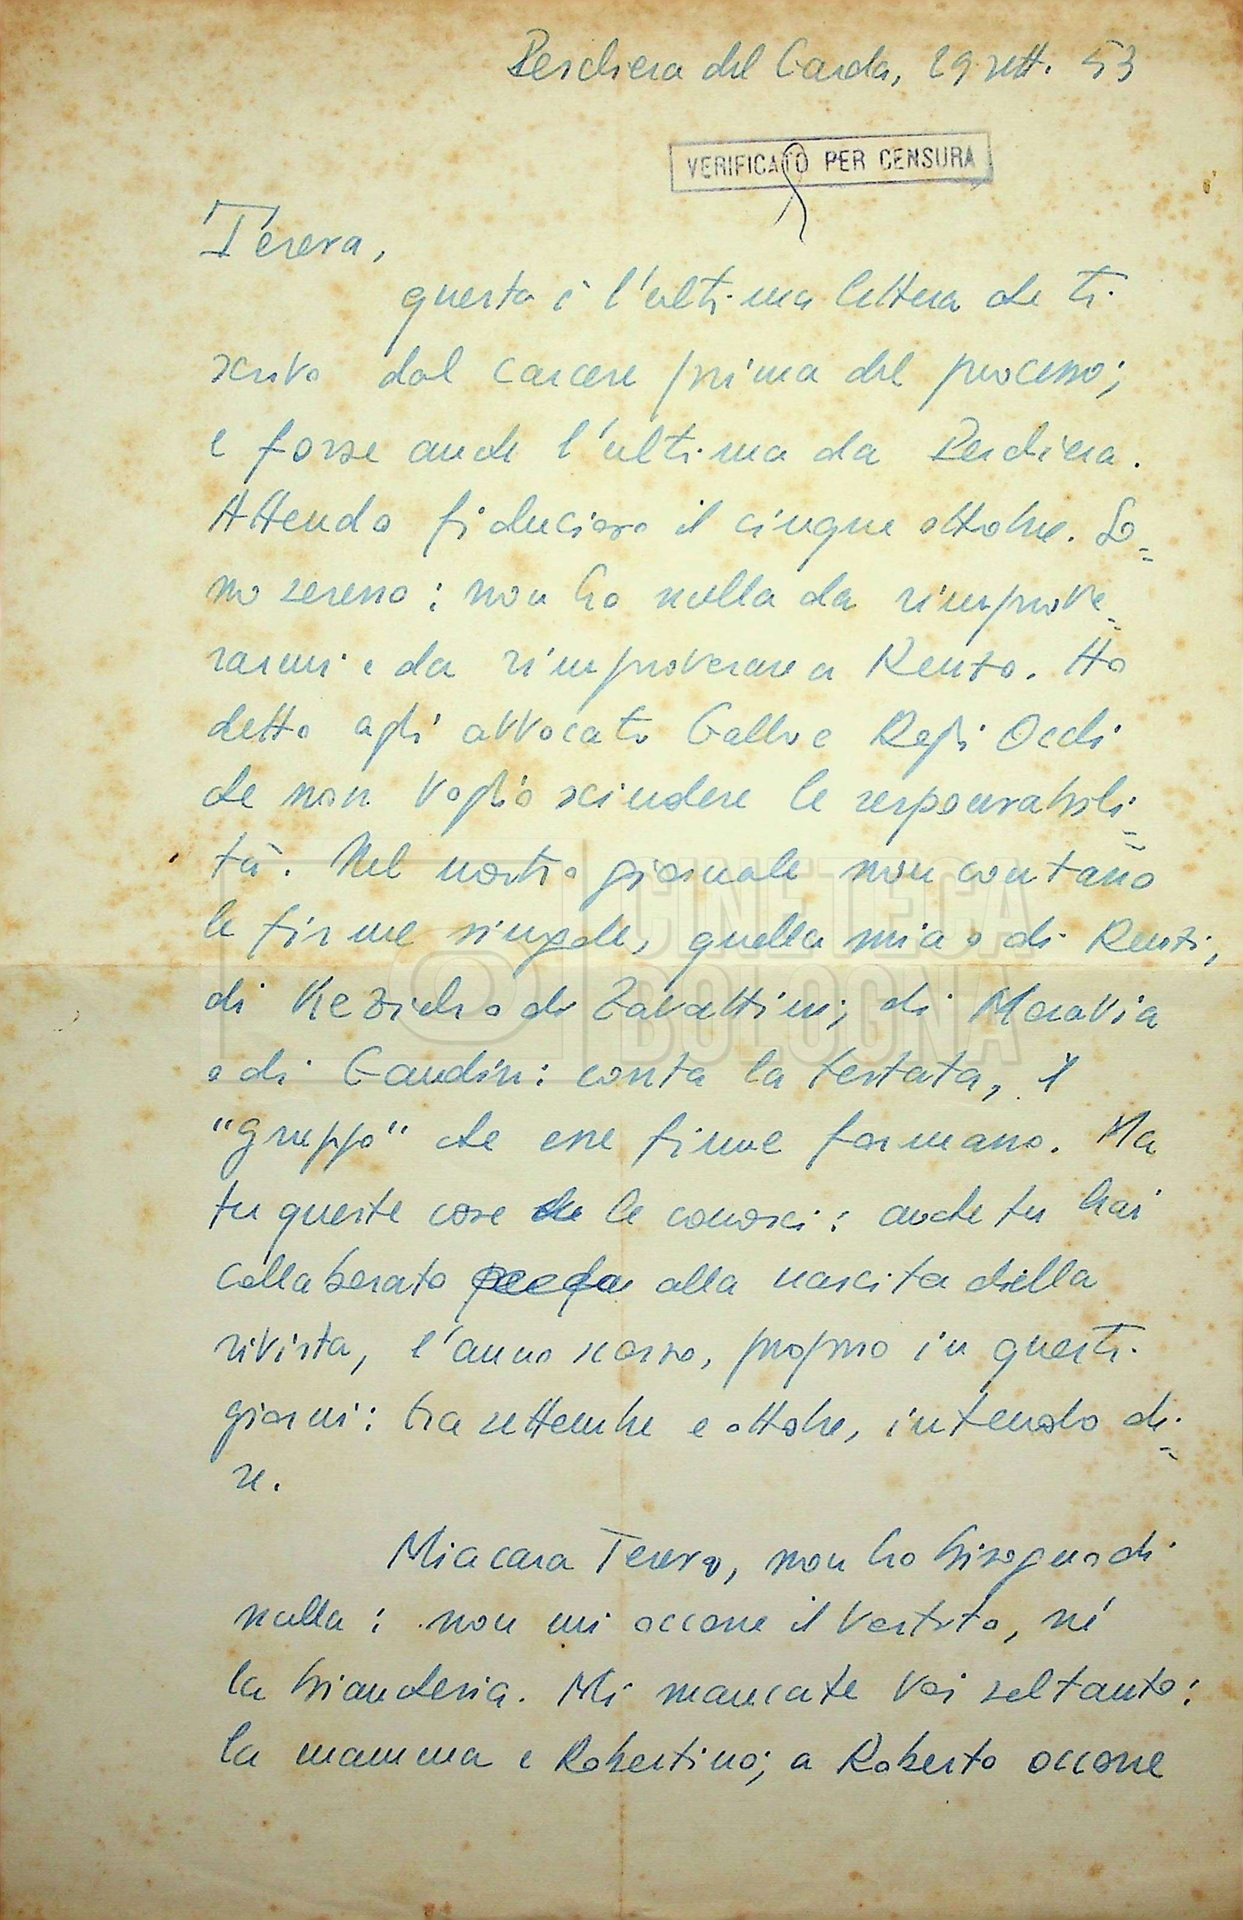 Peschiera del Garda, 29 sett. 53
VERIFICATO PER CENSURA
Teresa,
questa è l'ultima lettera che ti
scrivo dal carcere prima del processo;
e forse anche l'ultima da Peschiera.
Attendo fiducioso il cinque ottobre. So=
no sereno: non ho nulla da rimprove=
rarmi e da rimproverare a Renzo. Ho
detto agli avvocati Gallo e Regli Occhi
che non voglio scindere le responsabili=
tà. Nel nostro giornale non contano
le firme singole, quella mia o di Renzi,
di Kezich o di Zavattini, di Moravia
o di Gandin: conta la testata, il
"gruppo" che esse firme formano. Ma
tu queste cose le conosci: anche tu hai
collaborato alla nascita della
rivista, l'anno scorso, proprio in questi
giorni: tra settembre e ottobre, intendo di=
re.
Mia cara Teresa, non ho bisogno di
nulla: non mi occorre il vestito, né
la biancheria. Mi mancate voi soltanto:
la mamma e Robertino; a Roberto occorre
CINETECA
BOLOGNA